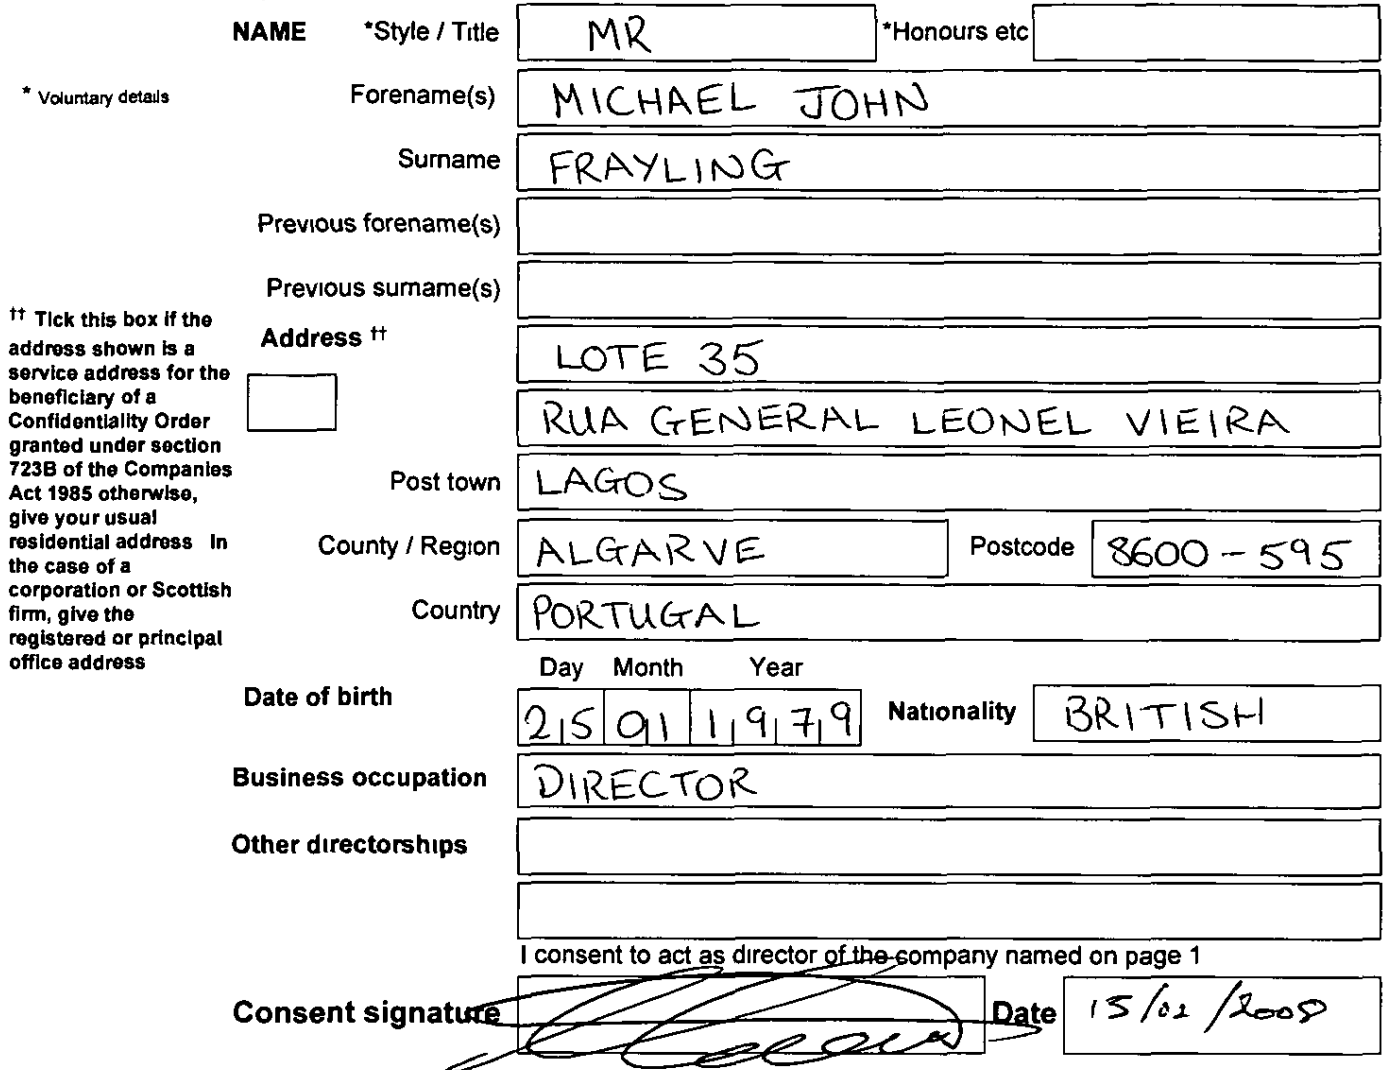 NAME *Style / Title MR *Honours etc
* Voluntary details Forename(s) MICHAEL JOHN
Surname FRAYLING
Previous forename(s)
Previous surname(s)
†† Tick this box if the
address shown is a
service address for the
beneficiary of a
Confidentiality Order
granted under section
723B of the Companies
Act 1985 otherwise,
give your usual
residential address In
the case of a
corporation or Scottish
firm, give the
registered or principal
office address
Address †† LOTE 35
RUA GENERAL LEONEL VIEIRA
Post town LAGOS
County / Region ALGARVE Postcode 8600-595
Country PORTUGAL
Day Month Year
Date of birth 25 01 1979 Nationality BRITISH
Business occupation DIRECTOR
Other directorships
I consent to act as director of the company named on page 1
Consent signature Date 15/02/2008